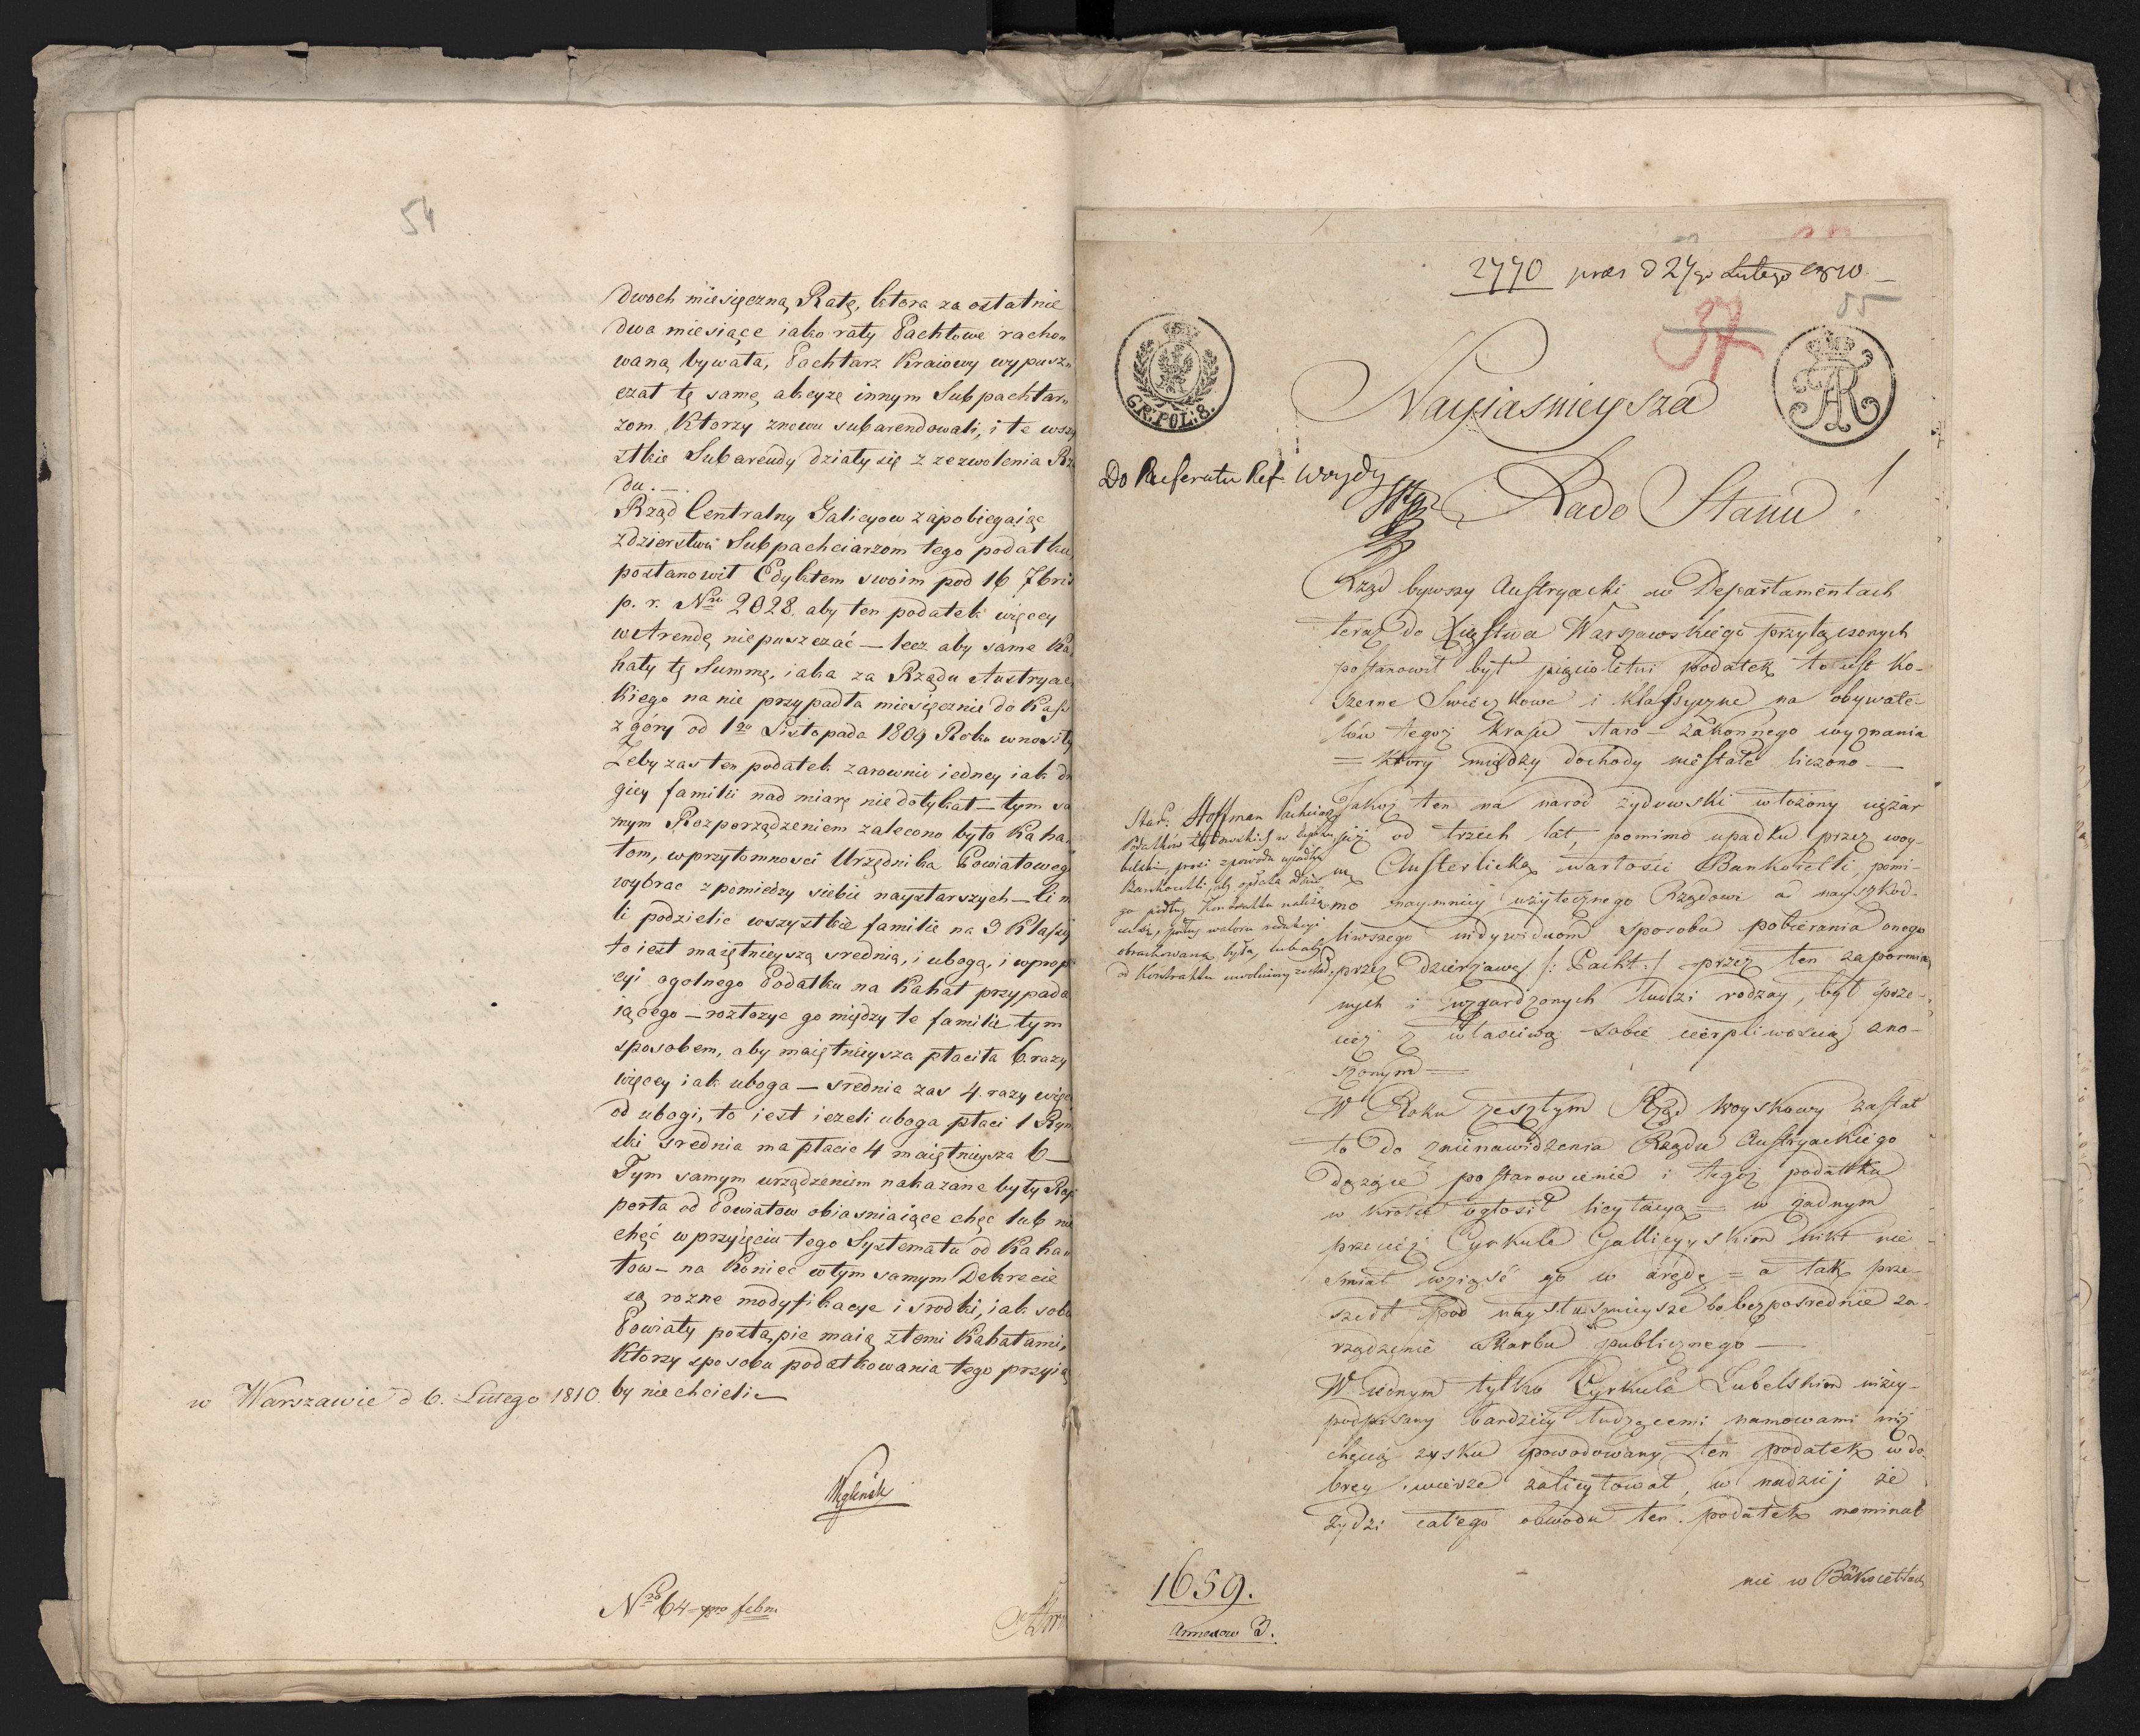 54
dwoch miesięczną Ratę, ktora za ostatnie
dwa miesiące iako raty Pachtowe racho„
waną bywała, Pachtarz Kraiowy wypusz„
czał tę samę akcyzę innym Subpachtar„
zom, Ktorzy znowu subarendowali, i te wszy
stkie Subarendy działy się z zezwolenia Rzą
du. —
Rząd Centralny Galicyow zapobiegaiąc
zdzierstwu Subpachciarzom tego podatku,
postanowił Edyktem swoim pod 16 7bris
p. r. Nro 2028. aby ten podatek więcey
w Arendę niepuszczać — lecz aby same Ka
hały tę Summę, iaka za Rządu Austryac
kiego na nie przypadła miesięcznie do Kass
z góry od 1go Listopada 1809 Roku wnosiły
Zeby zas ten podatek zarownie iedney iak dru
giey familii nad miarę nie dotykał — tym sa
mym Rozporządzeniem zalecono było Kaha„
łom, w przytomnosci Urzędnika Powiatowego
wybrac z pomiedzy siebie naystarszych — ci m
li podzielic wszystkie familie na 3 Klassy
to iest maiętnieyszą srednią, i ubogą, i w propo
cyi ogolnego Podatku na Kahał przypada
iącego — rozłozyc go między te familie tym
sposobem, aby maiętnieysza płaciła 6. razy
więcey iak uboga — srednia zas 4. razy więc
od ubogi, to iest iezeli uboga płaci 1 Ryn
ski srednia ma płacic 4 maiętnieysza 6 —
Tym samym urządzeniem nakazane były Rap
porta od Powiatow obiasniaiące chęc lub nie
chęć w przyięciu tego Systematu od Kaha„
łow — na Koniec w tym samym Dekrecie
są rozne modyfikacye i srodki, iak sobie
Powiaty postąpic maią z temi Kahałami,
Ktorzy sposobu podatkowania tego przyią
by nie chcieli —
w Warszawie d 6. Lutego 1810.
Węgleński
Nro 64 — pro febru.
2770 praes d 27go Lutego 1810 —
37
55
GR: POL: 8.
Nayiasnieysza
Rado Stanu!
Do Referatu Ref. Woydy
Rząd bywszy Austryacki w Departamentach
teraz do Xięstwa Warszawskiego przyłączonych
postanowił był pięcioletni podatek to iest Ko-
szerne Swieczkowe i Klassyczne na obywate-
lów tegoż Kraju staro-zakonnego wyznania
= który między dochody niestałe liczono —
Jakoż ten na naród żydowski włożony ciężar
już od trzech lat, pomimo upadku przez woy-
nę Austerlicką wartości Bankocetli, pomi-
mo naymniey użytecznego Rządowi a nayszkod-
liwszego indywiduom sposobu pobierania onego
przez Dzierżawę /: Pacht :/ przez ten zapomnia
nych i wzgardzonych ludzi rodzay, był prze-
cięż z właściwą sobie cierpliwością zno-
szonym —
Stad: Hoffman Pachciarz
Podatków Żydowskich w Cyrkule
belskim prosi z powodu upadku
Bankocetli, aby opłata Dzier
ga podług Kontraktu należą
ca się, podług waloru redukcyi
obrachowana była, lub aby
od Kontraktu uwolniony został.
W Roku zeszłym Rząd Woyskowy zastał
to do znienawidzenia Rządu Austryackiego
Dążące postanowienie i tegoż podatku
w krotce ogłosił licytacyą = w żadnym
przecież Cyrkule Gallicyyskim nikt nie
smiał wziąść go w arędę = a tak prze-
szedł pod naysłusznieysze bo bezpośrednie za-
rządzenie Skarbu publicznego —
W iednym tylko Cyrkule Lubelskim niżey-
podpisany bardziey łudzącemi namowami niż
chęcią zysku powodowany ten podatek w do
brey wierze zalicytował, w nadziej że
Żydzi całego obwodu ten podatek nominal
nie w Bankocetlach
1659.
Annexow 3.